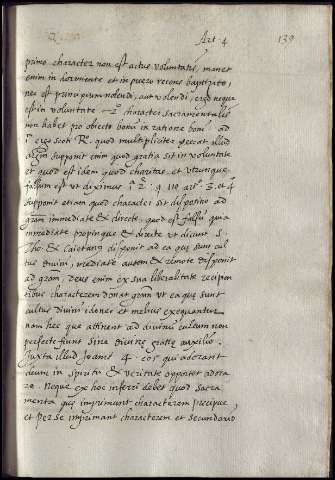 Art 4
139
primo character non est actus voluntatis, manet
enim in dormiente et in puero recens baptizato,
nec est principium nolendi, aut volendi, ergo neque
est in voluntate. 2º character sacramentalis
non habet pro obiecto bonū in ratione boni. ad
1 ergo Scoti Rº. quod multipliciter peccat illud
supponit enim quod gratia sit in voluntate
et quod est idem quod charitas. et utrunque
falsum est ut diximus 1ª 2ę. q. 110 art. 3. et 4
supponit etiam quod character sit dispositio ad
gratiam immediate & directe. quod est falsū quia
immediate propinque & directe ut dicunt S.
Tho. & Caietanus disponit ad ea quę sunt cul
tus divini, mediate autem & remote disponit
ad gram, deus enim ex sua liberalitate recipien
tibus characterem donat gram ut ea quę sunt
cultus divini idonee et melius exequantur
nam hęc quę attinent ad divinū cultum non
perfecte fiunt sine divinę gratię auxilio.
Iuxta illud Joanis 4 eos qui adorant
deum in spiritu & veritate oportet adora
re. Neque ex hoc inferri debet quod sacra
menta quę imprimunt characterem pręcipue,
et per se imprimant characterem et secundario